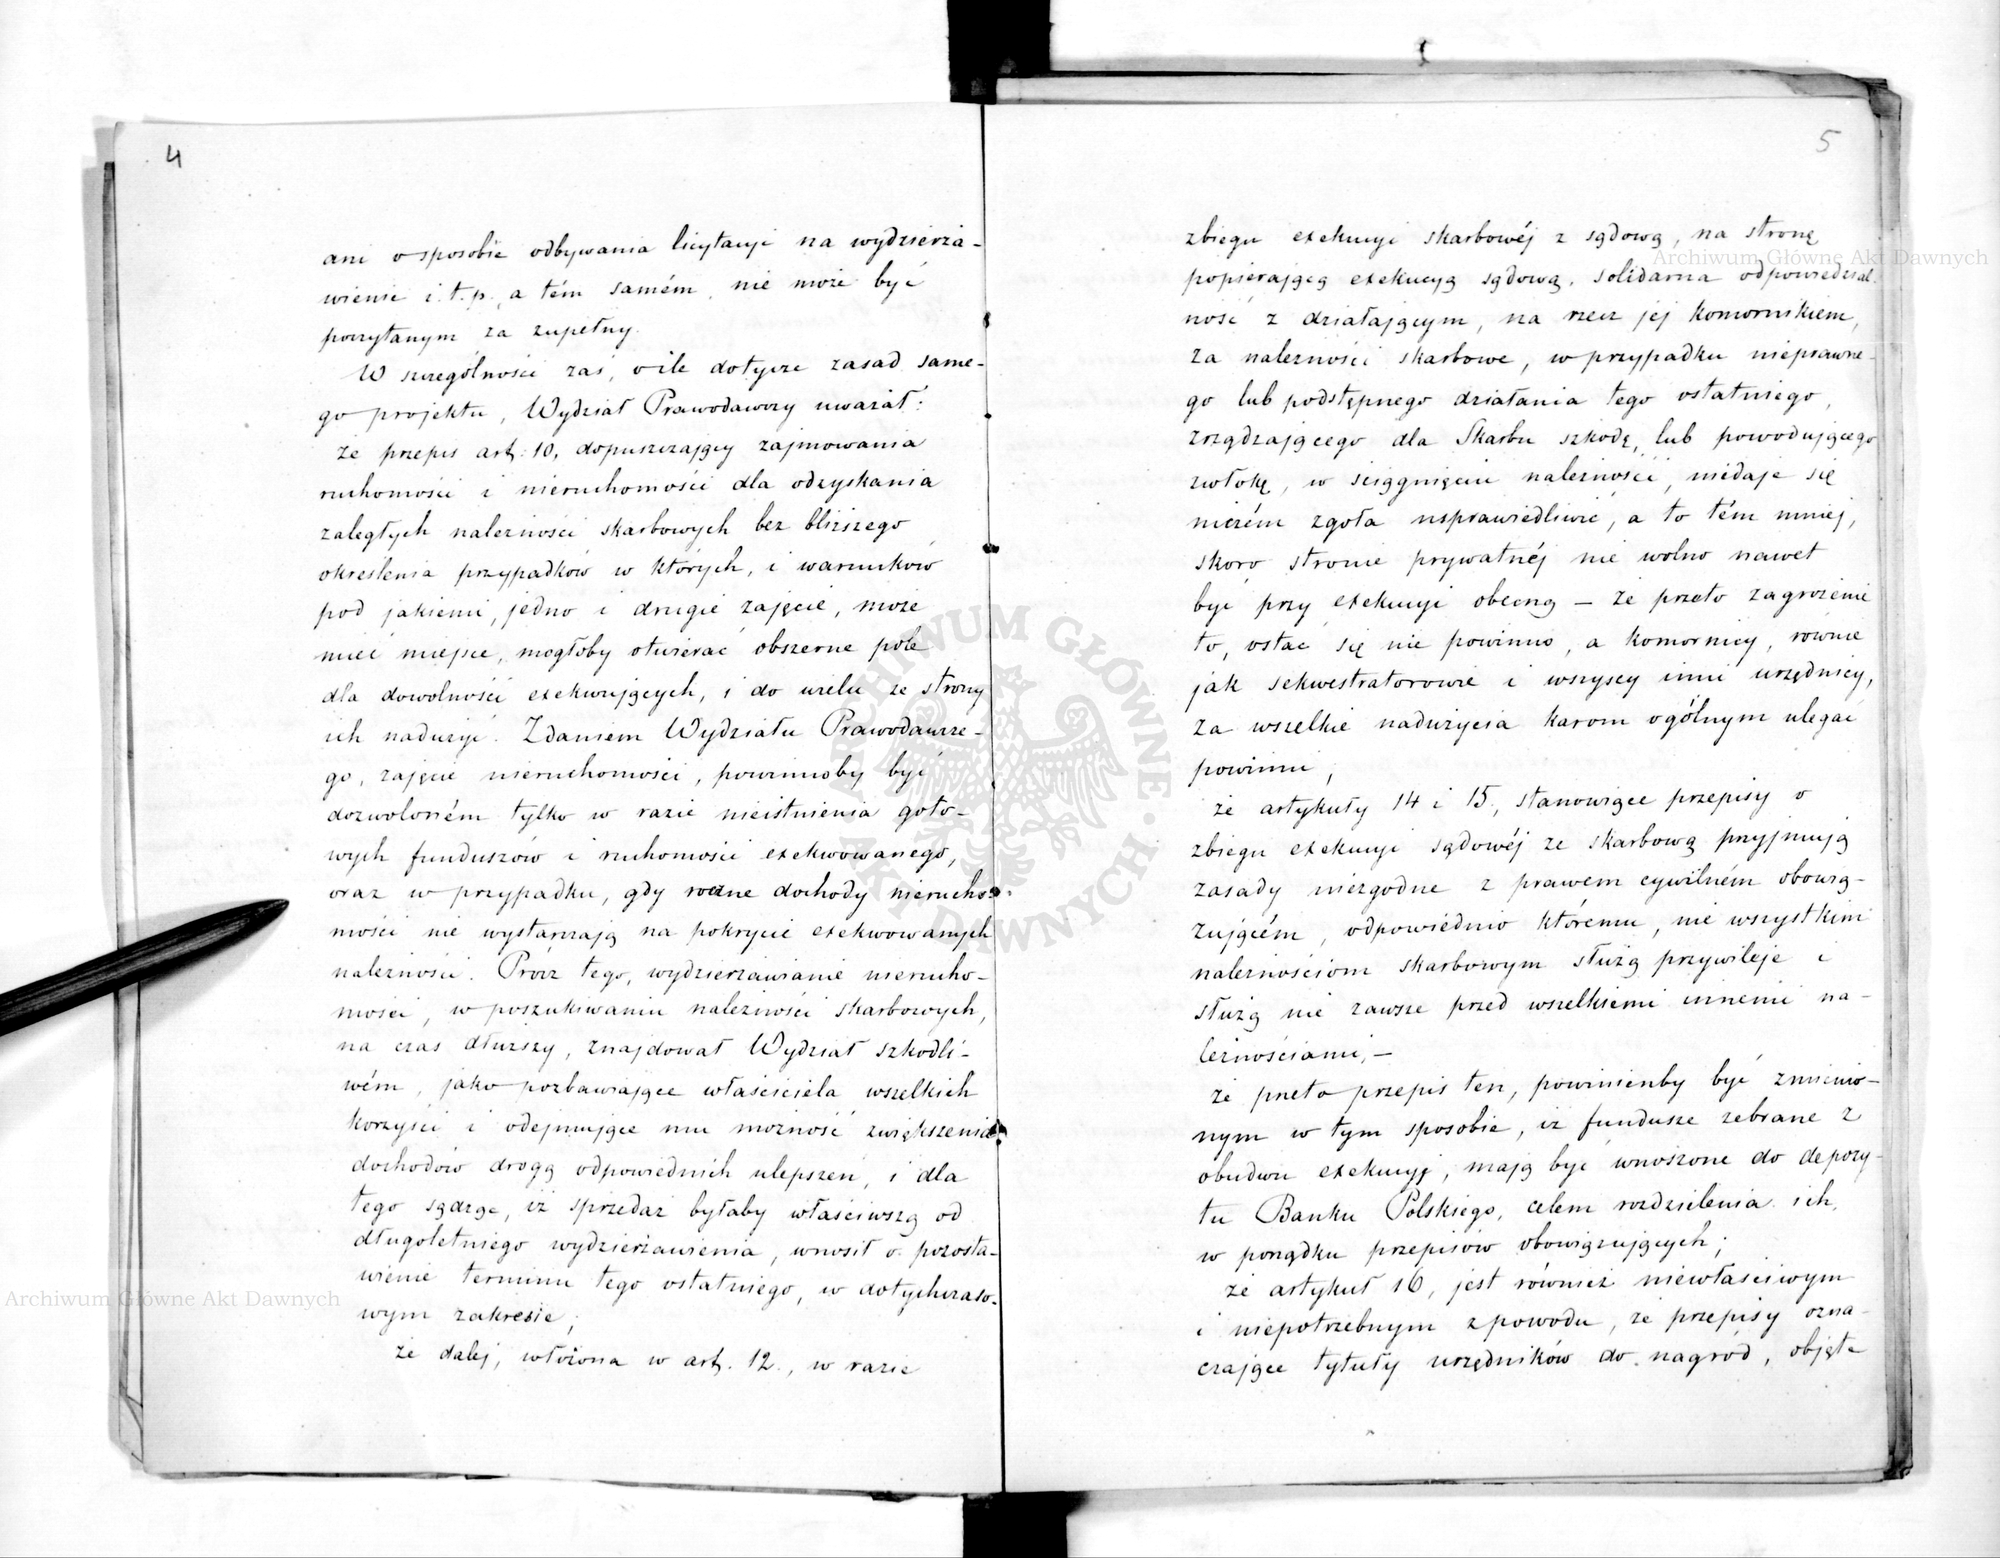 4
ani o sposobie odbywania licytacyi na wydzierża-
wienie i. t. p. a tém samém, nie może być
poczytanym za zupełny.
W szczególności zaś, o ile dotycze zasad same-
go projektu, Wydział Prawodawczy uważał:
że przepis art. 10, dopuszczający zajmowania
ruchomości i nieruchomości dla odzyskania
zaległych należności skarbowych bez bliższego
określenia przypadków w których, i warunków
pod jakiemi, jedno i drugie zajęcie, może
mieć miejsce, mogłoby otwierać obszerne pole
dla dowolności exekwujących, i do wielu ze strony
ich nadużyć. Zdaniem Wydziału Prawodawcze-
go, zajęcie nieruchomości, powinnoby być
dozwoloném tylko w razie nieistnienia goto-
wych funduszów i ruchomości exekwowanego,
oraz w przypadku, gdy roczne dochody nierucho-
mości nie wystarczają na pokrycie exekwowanych
należności. Prócz tego, wydzierżawianie nierucho-
mości, w poszukiwaniu należności skarbowych,
na czas dłuższy, znajdował Wydział szkodli-
wém, jako pozbawiające właściciela wszelkich
korzyści i odejmujące mu możność zwiększenia
dochodów drogą odpowiednich ulepszeń, i dla
tego sądząc, iż sprzedaż byłaby właściwszą od
długoletniego wydzierżawienia, wnosił o pozosta-
wienie terminu tego ostatniego, w dotychczaso-
wym zakresie;
że dalej, włożona w art. 12., w razie
5
zbiegu exekucyi skarbowéj z sądową, na stronę
popierającą exekucyą sądową, solidarna odpowiedzial-
ność z działającym, na rzecz jej komornikiem,
za należności skarbowe, w przypadku nieprawne-
go lub podstępnego działania tego ostatniego,
zrządzającego dla Skarbu szkodę, lub powodującego
zwłokę, w ściągnięciu należności, niedaje się
niczém zgoła usprawiedliwić, a to tém mniej,
skoro stronie prywatnéj nie wolno nawet
być przy exekucyi obecną – że przeto zagrożenie
to, ostać się nie powinno, a komornicy, równie
jak sekwestratorowie i wszyscy inni urzędnicy,
za wszelkie nadużycia karom ogólnym ulegać
powinni;
że artykuły 14 i 15., stanowiące przepisy o
zbiegu exekucyi sądowéj ze skarbową przyjmują
zasady niezgodne z prawem cywilném obowią-
zującém, odpowiednio któremu, nie wszystkim
należnościom skarbowym służą przywileje i
służą nie zawsze przed wszelkiemi innemi na-
leżnościami, –
że przeto przepis ten, powinienby być zmienio-
nym w tym sposobie, iż fundusze zebrane z
obudwu exekucyj, mają być wnoszone do depozy-
tu Banku Polskiego, celem rozdzielenia ich,
w porządku przepisów obowiązujących;
że artykuł 16, jest również niewłaściwym
i niepotrzebnym z powodu, że przepisy ozna-
czające tytuły urzędników do nagród, objęte
Archiwum Główne Akt Dawnych
Archiwum Główne Akt Dawnych
ARCHIWUM GŁÓWNE AKT DAWNYCH